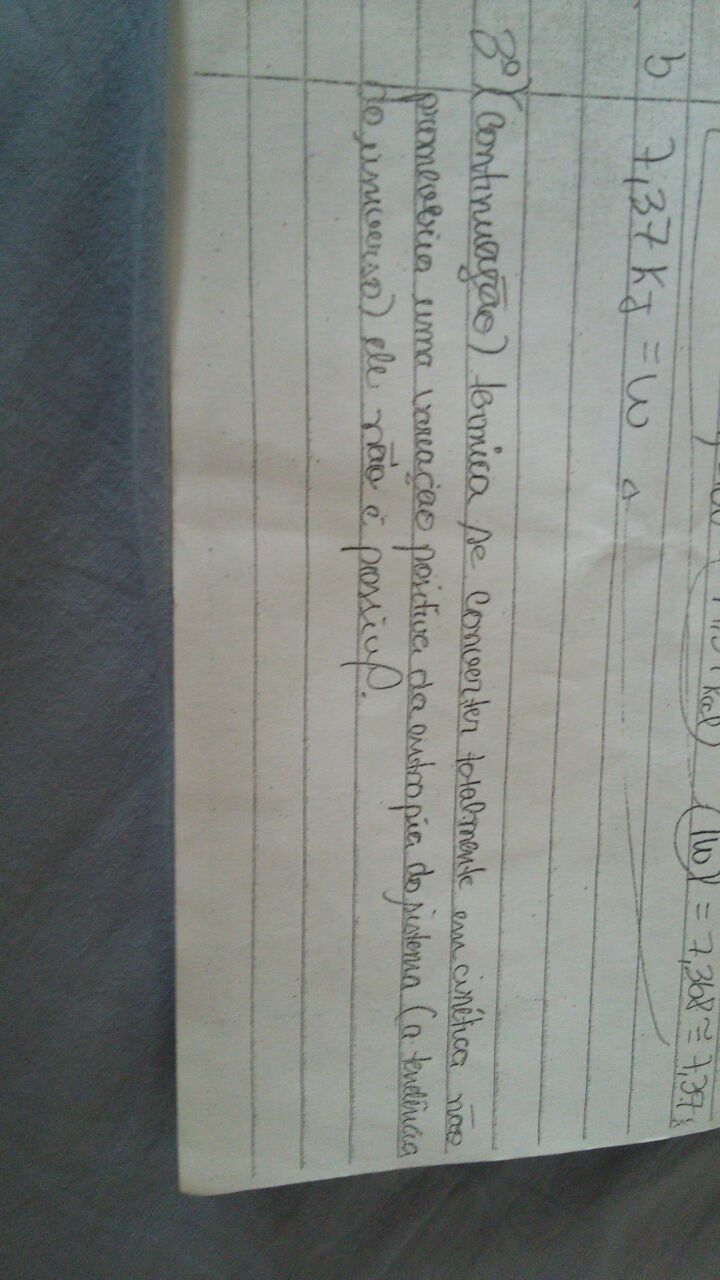 kcal) (1w) = 7,368 ≅ 7,37
b 7,37 KJ = W
3º) (continuação) térmica se converter totalmente em cinética não
promoveria uma variação positiva da entropia do sistema (a tendência
do universo) ele não é possível.